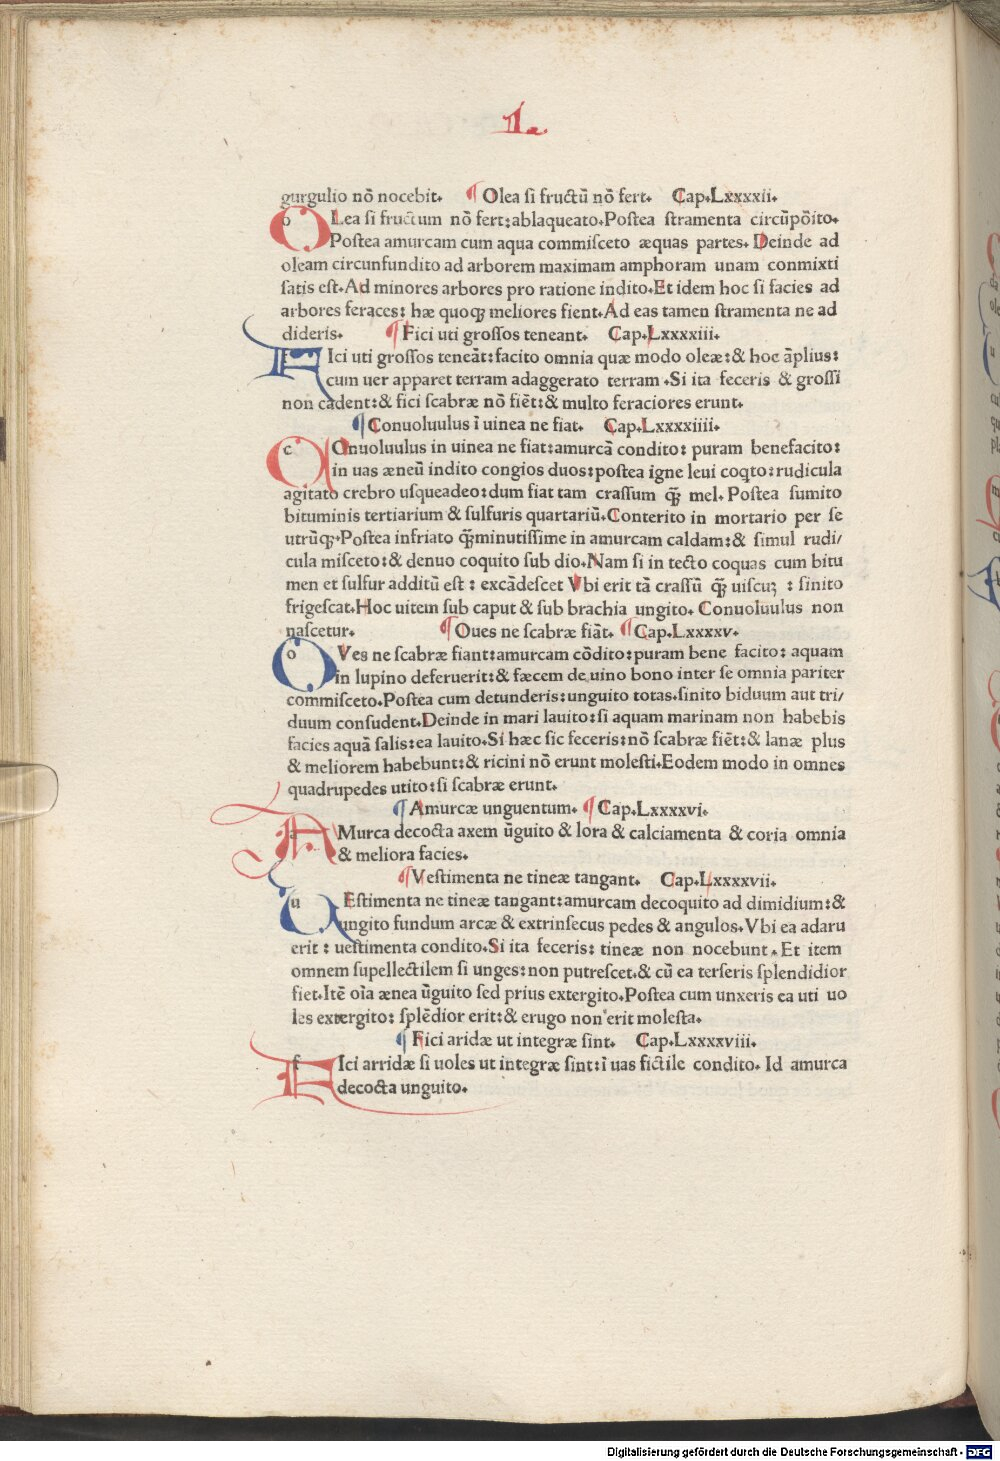 gurgulio nō nocebit. ¶ Olea ſi fructū nō fert. Cap.Lxxxxii.
OLea ſi fructum nō fert:ablaqueato.Poſtea ſtramenta circūpōito.
Poſtea amurcam cum aqua commiſceto æquas partes. Deinde ad
oleam circunfundito ad arborem maximam amphoram unam conmixti
ſatis eſt.Ad minores arbores pro ratione indito.Et idem hoc ſi facies ad
arbores feraces: hæ quoq; meliores fient.Ad eas tamen ſtramenta ne ad
dideris. ¶ Fici uti groſſos teneant. Cap.Lxxxxiii.
FIci uti groſſos teneāt:facito omnia quæ modo oleæ:& hoc āplius:
cum uer apparet terram adaggerato terram .Si ita feceris & groſſi
non cadent:& fici ſcabræ nō fiēt:& multo feraciores erunt.
¶ Conuoluulus ī uinea ne fiat. Cap.Lxxxxiiii.
COnuoluulus in uinea ne fiat:amurcā condito: puram benefacito:
in uas æneū indito congios duos:poſtea igne leui coqto:rudicula
agitato crebro uſqueadeo:dum fiat tam craſſum q̄ mel. Poſtea ſumito
bituminis tertiarium & ſulfuris quartariū.Conterito in mortario per ſe
utrūq;.Poſtea infriato q̄minutiſſime in amurcam caldam:& ſimul rudi/
cula miſceto:& denuo coquito ſub dio.Nam ſi in tecto coquas cum bitu
men et ſulfur additū eſt : excādeſcet Vbi erit tā craſſū q̄ uiſcuꝫ : ſinito
frigeſcat.Hoc uitem ſub caput & ſub brachia ungito. Conuoluulus non
naſcetur. ¶ Oues ne ſcabræ fiāt. ¶ Cap.Lxxxxv.
OVes ne ſcabræ fiant:amurcam cōdito:puram bene facito: aquam
in lupino deferuerit:& fæcem de uino bono inter ſe omnia pariter
commiſceto.Poſtea cum detunderis:unguito totas.ſinito biduum aut tri/
duum conſudent.Deinde in mari lauito:ſi aquam marinam non habebis
facies aquā ſalis:ea lauito.Si hæc ſic feceris:nō ſcabræ fiēt:& lanæ plus
& meliorem habebunt:& ricini nō erunt moleſti.Eodem modo in omnes
quadrupedes utito:ſi ſcabræ erunt.
¶ Amurcæ unguentum. ¶ Cap.Lxxxxvi.
AMurca decocta axem ūguito & lora & calciamenta & coria omnia
& meliora facies.
¶ Veſtimenta ne tineæ tangant. Cap.Lxxxxvii.
uEſtimenta ne tineæ tangant:amurcam decoquito ad dimidium:&
ungito fundum arcæ & extrinſecus pedes & angulos.Vbi ea adaru
erit : ueſtimenta condito.Si ita feceris: tineæ non nocebunt. Et item
omnem ſupellectilem ſi unges:non putreſcet.& cū ea terſeris ſplendidior
fiet.Itē oīa ænea ūguito ſed prius extergito.Poſtea cum unxeris ea uti uo
les extergito: ſplēdior erit:& erugo non erit moleſta.
¶ Fici aridæ ut integræ ſint. Cap.Lxxxxviii.
FIci arridæ ſi uoles ut integræ ſint:ī uas fictile condito. Id amurca
decocta unguito.
Digitalisierung gefördert durch die Deutsche Forschungsgemeinschaft - DFG